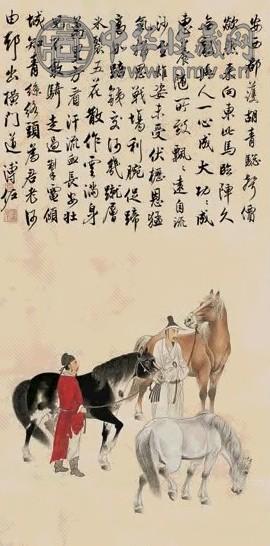 安西都護胡青驄聲價
欻然來向東此馬臨陣久
無敵與人一心成大功〻成
惠養隨所致飄〻遠自流
沙至雄姿未受伏櫪恩猛
氣猶思戰場利腕促蹄
高如踣鐵交河幾蹴層
冰裂五花散作雲滿身
萬里方看汗流血長安壯
兒不敢騎走過掣電傾
城知青絲絡頭為君老何
由卻出橫門道 溥佐